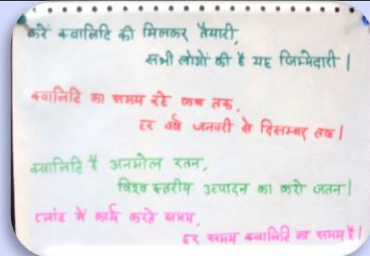 करें क्वालिटि की मिलकर तैयारी,
सभी लोगों की है यह जिम्मेदारी |
क्वालिटि का समय रहे कब तक,
हर वर्ष जनवरी से दिसम्बर तक |
क्वालिटि है अनमोल रतन,
विश्व स्तरीय उत्पादन का करो जतन |
प्लांट में कार्य करते समय,
हर समय क्वालिटि का समय है |